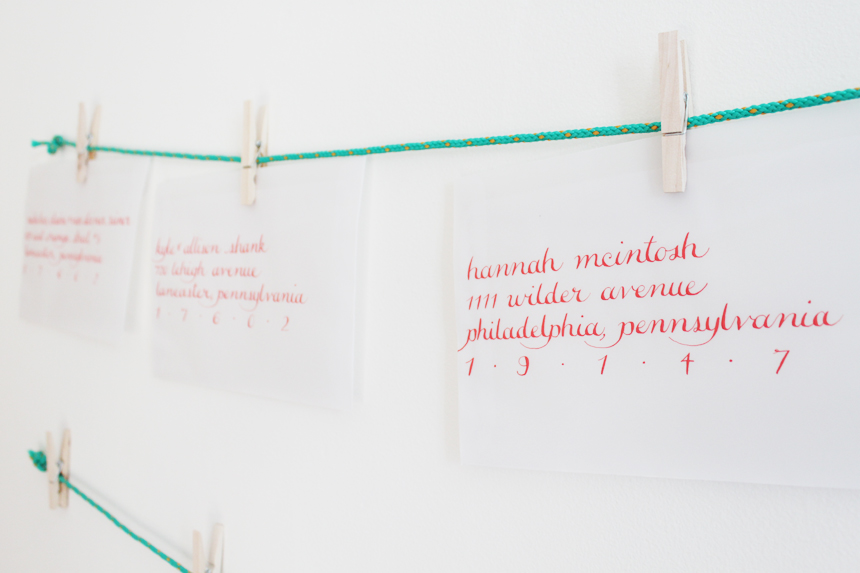 hannah mcintosh
1111 wilder avenue
philadelphia, pennsylvania
1 · 9 · 1 · 4 · 7
kyle + allison shank
lehigh avenue
lancaster, pennsylvania
1 7 6 0 2
lancaster, pennsylvania